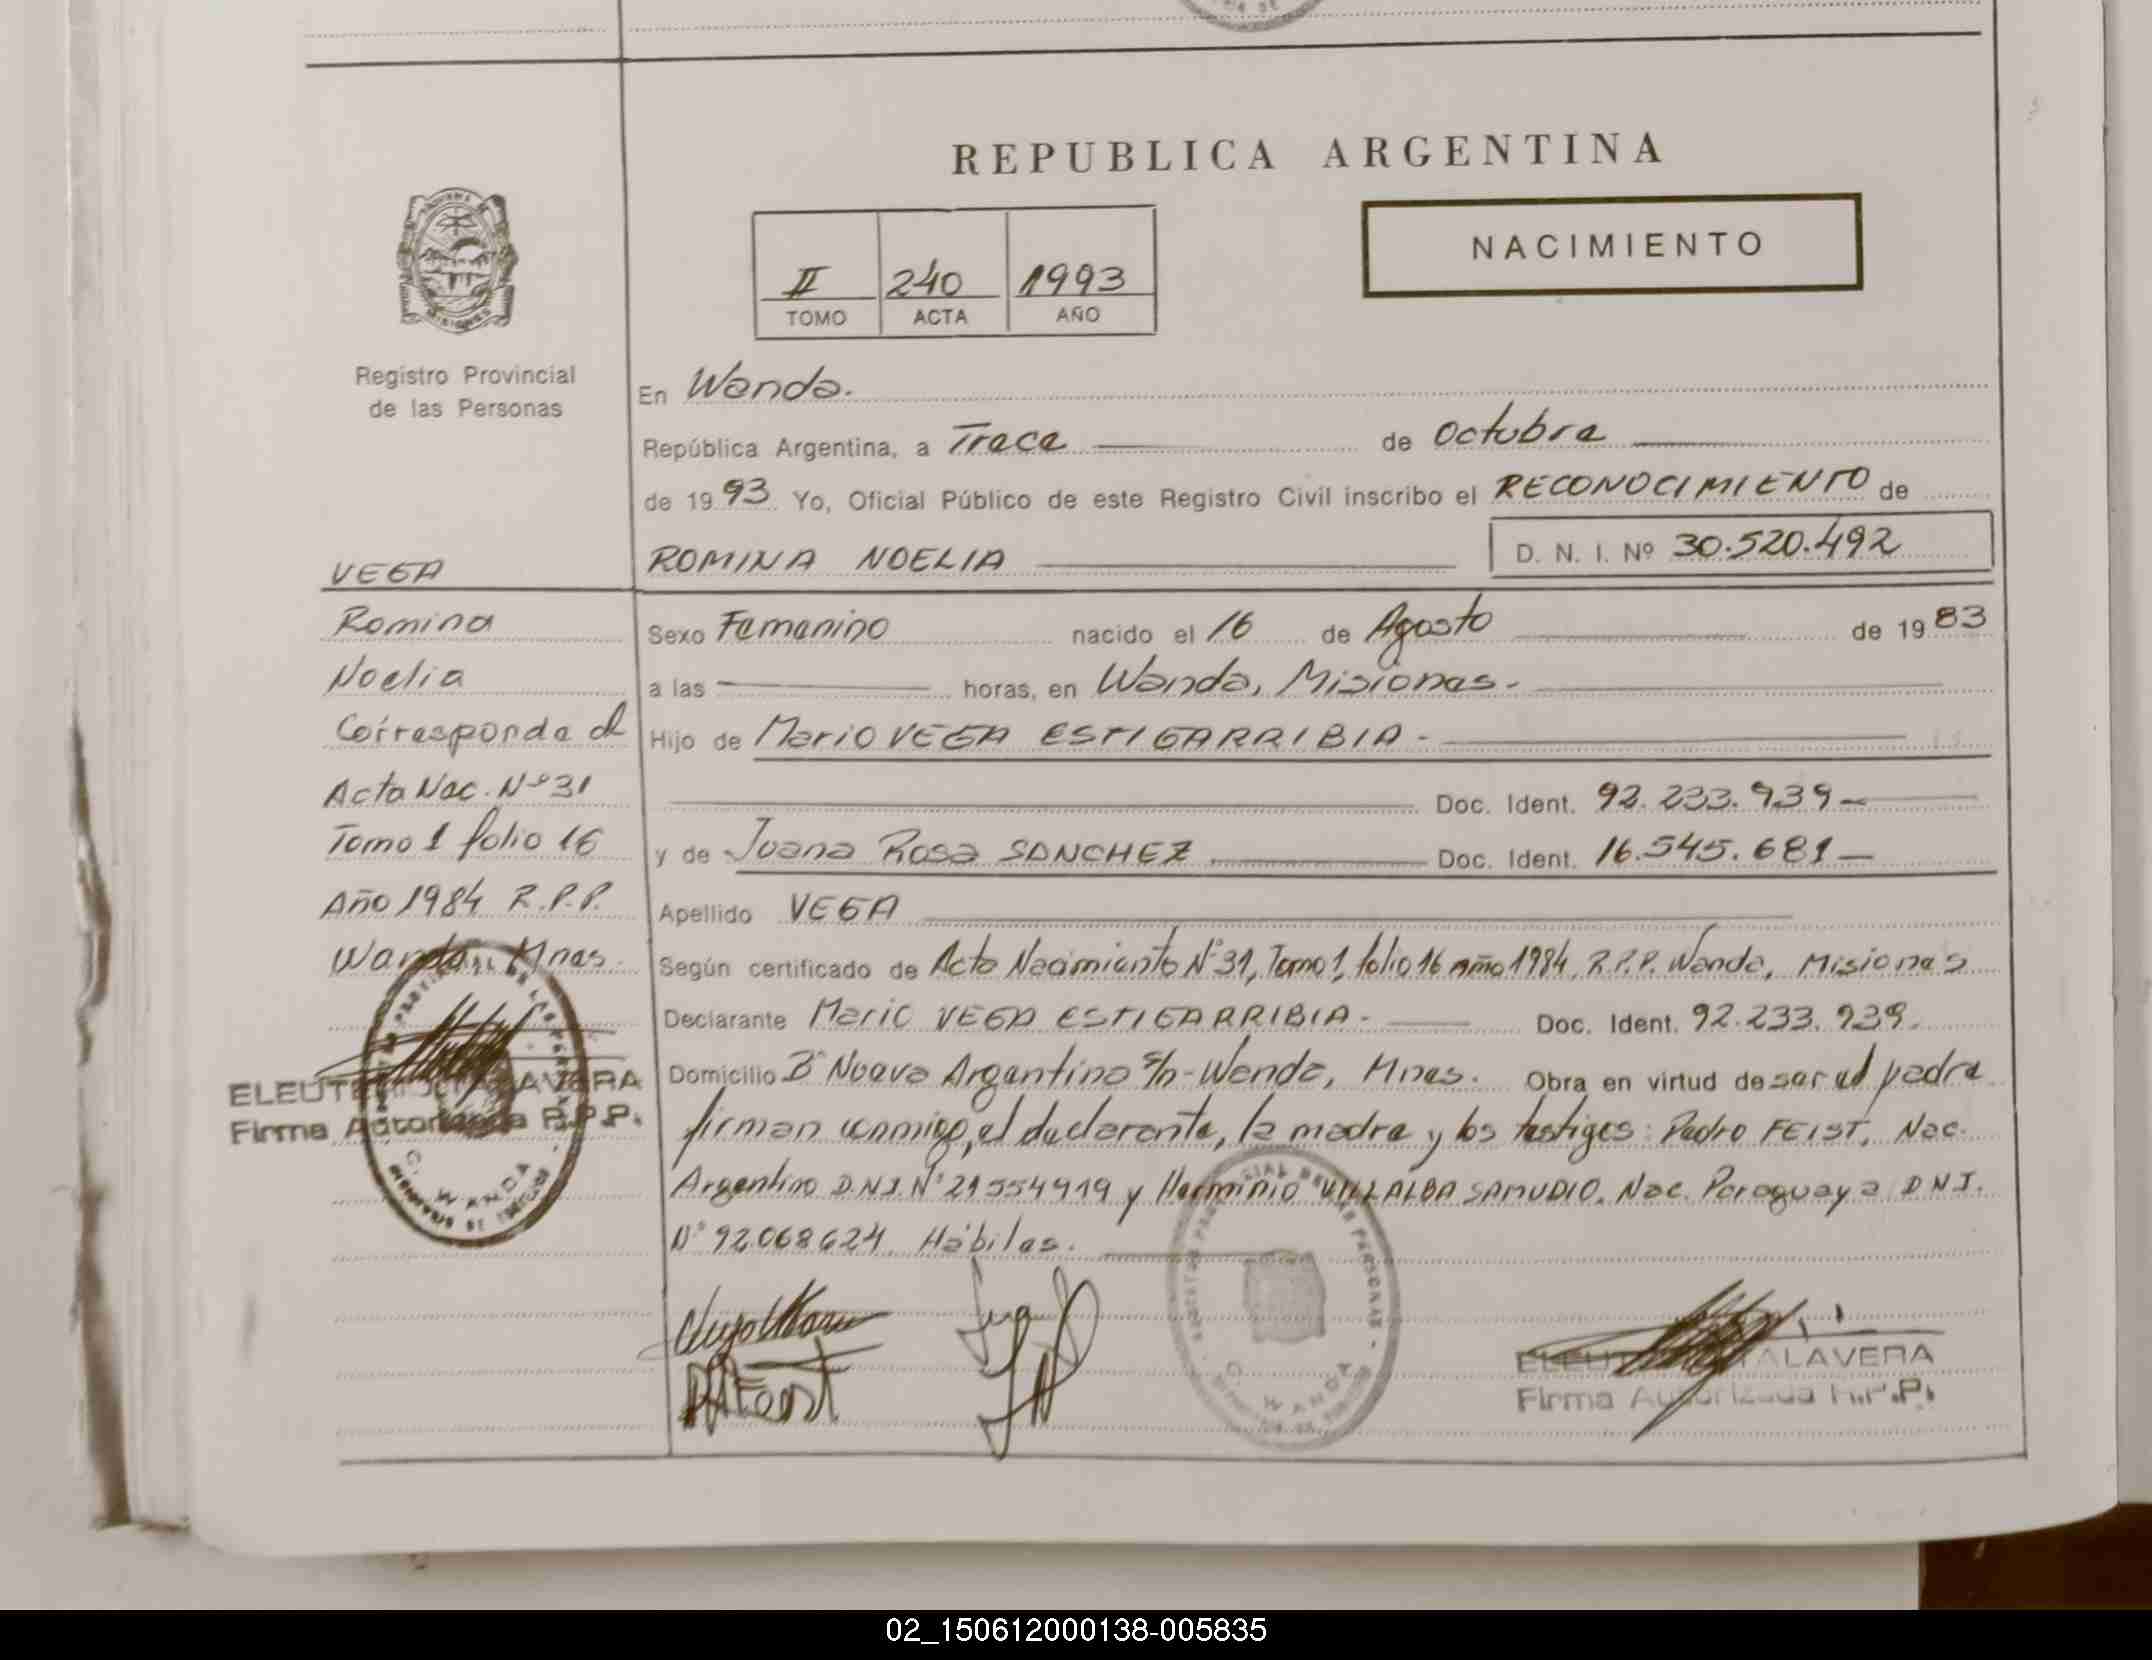 REPUBLICA ARGENTINA
NACIMIENTO
II 240 1993
TOMO ACTA AÑO
Registro Provincial
de las Personas
En Wanda.
República Argentina, a Trece de Octubre
de 1993 Yo, Oficial Público de este Registro Civil inscribo el RECONOCIMIENTO de
ROMINA NOELIA D. N. I. Nº 30.520.492
VEGA
Romina
Noelia
Corresponde al
Acta Nac. Nº 31
Tomo 1 folio 16
Año 1984 R.P.P.
Wanda, Mnes.
Sexo Femenino nacido el 16 de Agosto de 1983
a las horas, en Wanda, Misiones.
Hijo de Mario VEGA ESTIGARRIBIA.
Doc. Ident. 92.233.939
y de Juana Rosa SANCHEZ Doc. Ident. 16.545.681
Apellido VEGA
Según certificado de Acta Nacimiento Nº 31, Tomo 1, folio 16 Año 1984, R.P.P. Wanda, Misiones
Declarante Mario VEGA ESTIGARRIBIA. Doc. Ident. 92.233.939.
Domicilio Bº Nueva Argentina s/n-Wanda, Mnes. Obra en virtud de ser el padre
firman conmigo, el declarante, la madre y los testigos: Pedro FEIST, Nac.
Argentino D.N.I. Nº 21554919 y Herminio VILLALBA SAMUDIO, Nac. Paraguaya D N I.
Nº 92068624. Hábiles.
ELEUTERIO TALAVERA
Firma Autorizada R.P.P.
WANDA
WANDA
ALAVERA
Firma Autorizada R.P.P.
02_150612000138-005835